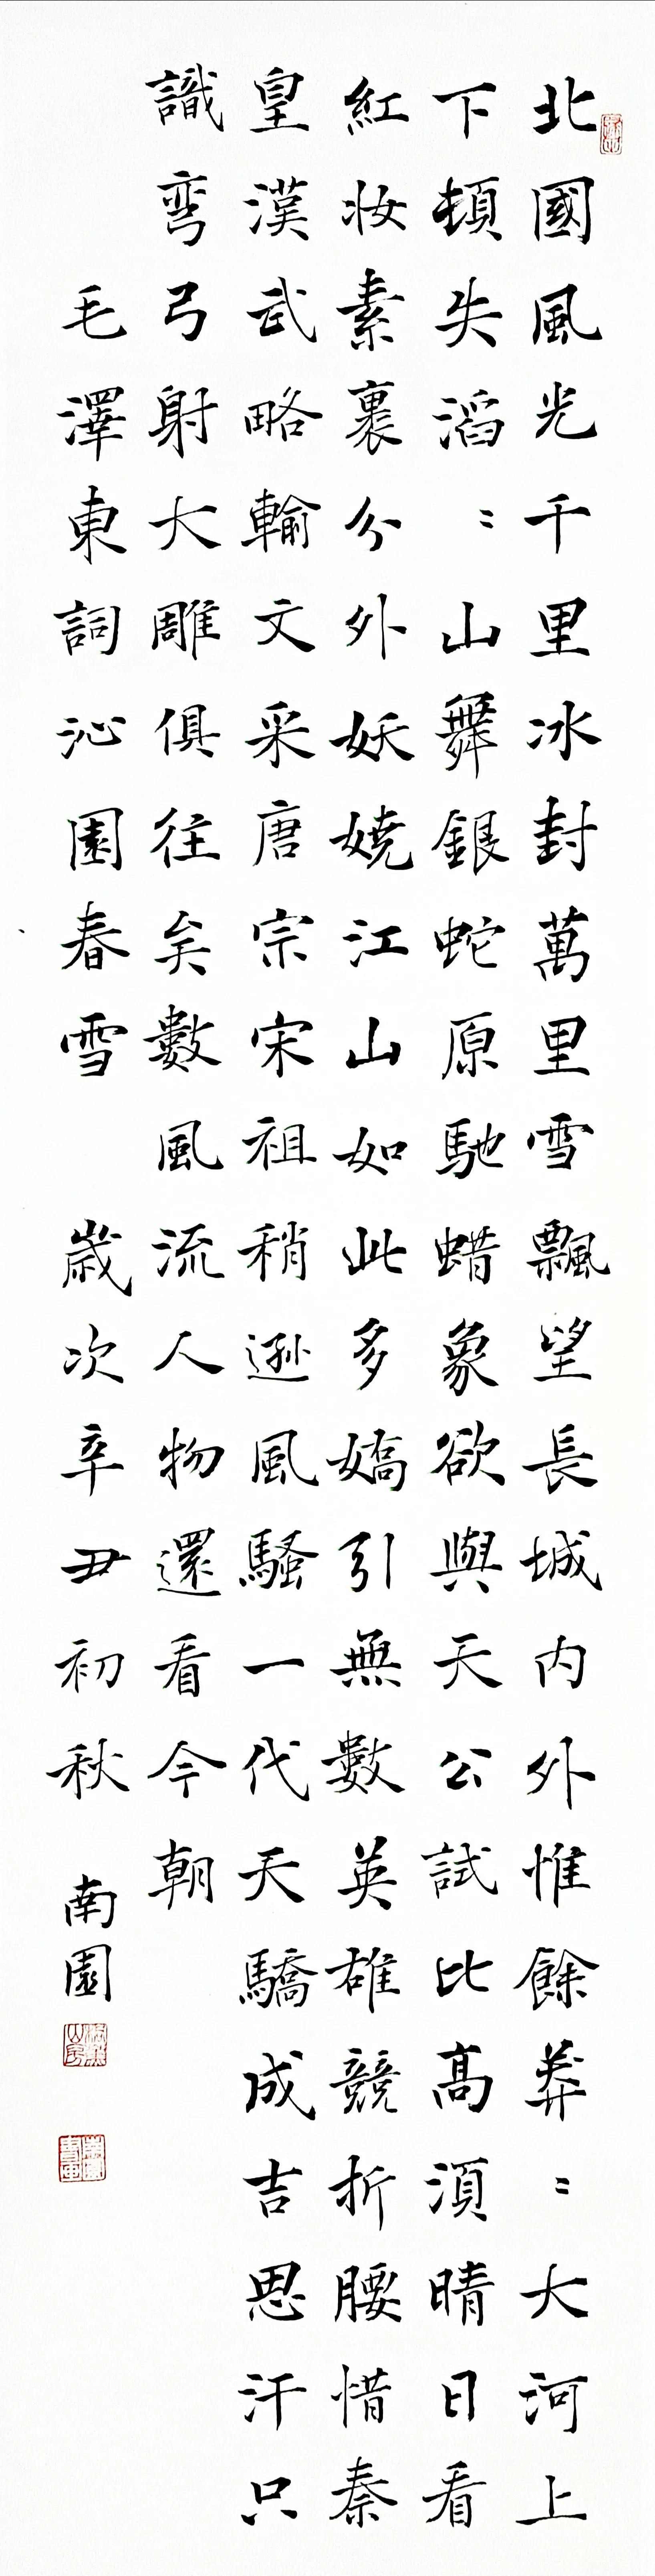 北國風光千里冰封萬里雪飄望長城内外惟餘莽〻大河上
下頓失滔〻山舞銀蛇原馳蜡象欲與天公試比高須晴日看
紅妆素裹分外妖嬈江山如此多嬌引無數英雄競折腰惜秦
皇漢武略輸文采唐宗宋祖稍遜風騷一代天驕成吉思汗只
識弯弓射大雕俱往矣數風流人物還看今朝
毛澤東詞沁園春雪 歲次辛丑初秋 南園